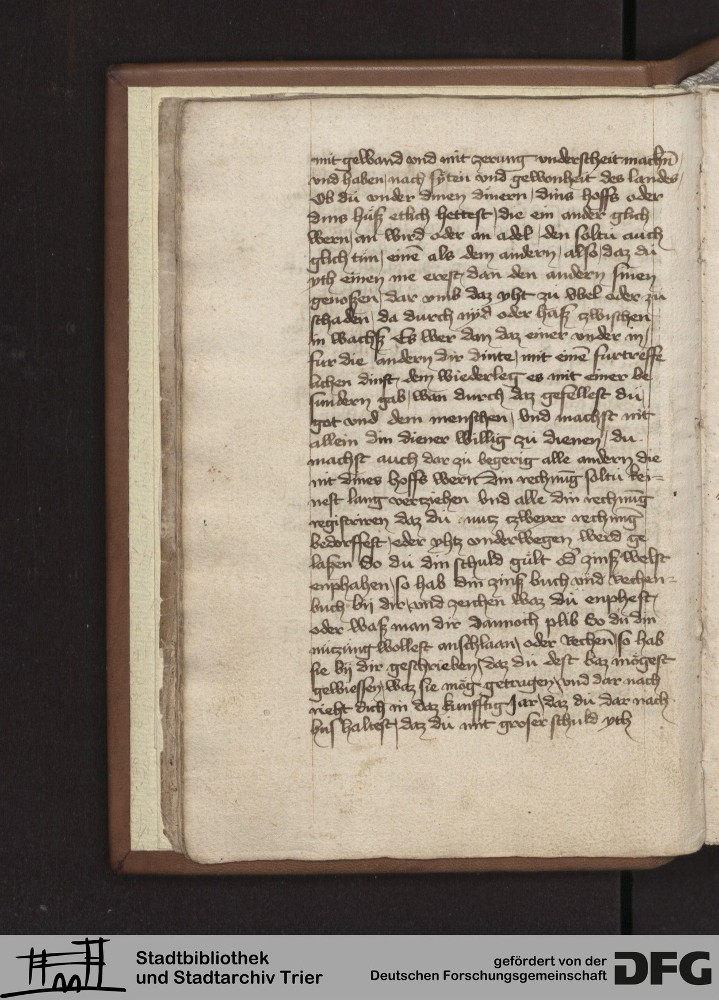 mit gewand vnd mit zerung vnderscheit machē
vnd haben / nach syten vnd gewonheit des landes /
Ob du vnder dinen dinern / dins hoffs oder
dins huß etlich hettest / die ein ander glich
wern / an wird oder an adel / den soltu auch
glich tun / einē als dem andern / also daz du
yth einen me erest / dan den andern sinen
genoßen / dar vmb daz yht zu vbel oder zu
schaden / da durch nyd oder haß zwischen
in wachß Es wer dan daz einer vnder in /
fur die andern dir dinte / mit einē furtreffe
lichen dinst / dem wiederleg es mit einer be
sundern gab / wan durch daz gefellest du
got vnd dem menschen / vnd machst nit
allein din diener willig zu dienen / du
machst auch dar zu begerig alle andern die
nit dines hoffs wern Din rechnūg soltu kei=
nest lang vertziehen vnd alle din rechnūg
registriren daz du nutz tzweyer rechnūg
bedorffest / oder yhtz vnderwegen werd ge
laßen So du din schuld gult od' zinß welst
enphahen / so hab din zinß buch vnd rechen=
buch bij dir / vnd zeichen waz du enphest /
oder waß man dir dannoch plib So du din
nutzung wollest anschlaan / oder rechen / so hab
sie bij dir geschrieben / daz du dest baz mögest
gewissen / waz sie mög getragen / vnd dar nach
rieht dich in daz kunfftig Jar / daz du dar nach
huß haltest / daz du mit groser schuld yth
Stadtbibliothek
und Stadtarchiv Trier
gefördert von der
Deutschen Forschungsgemeinschaft
DFG